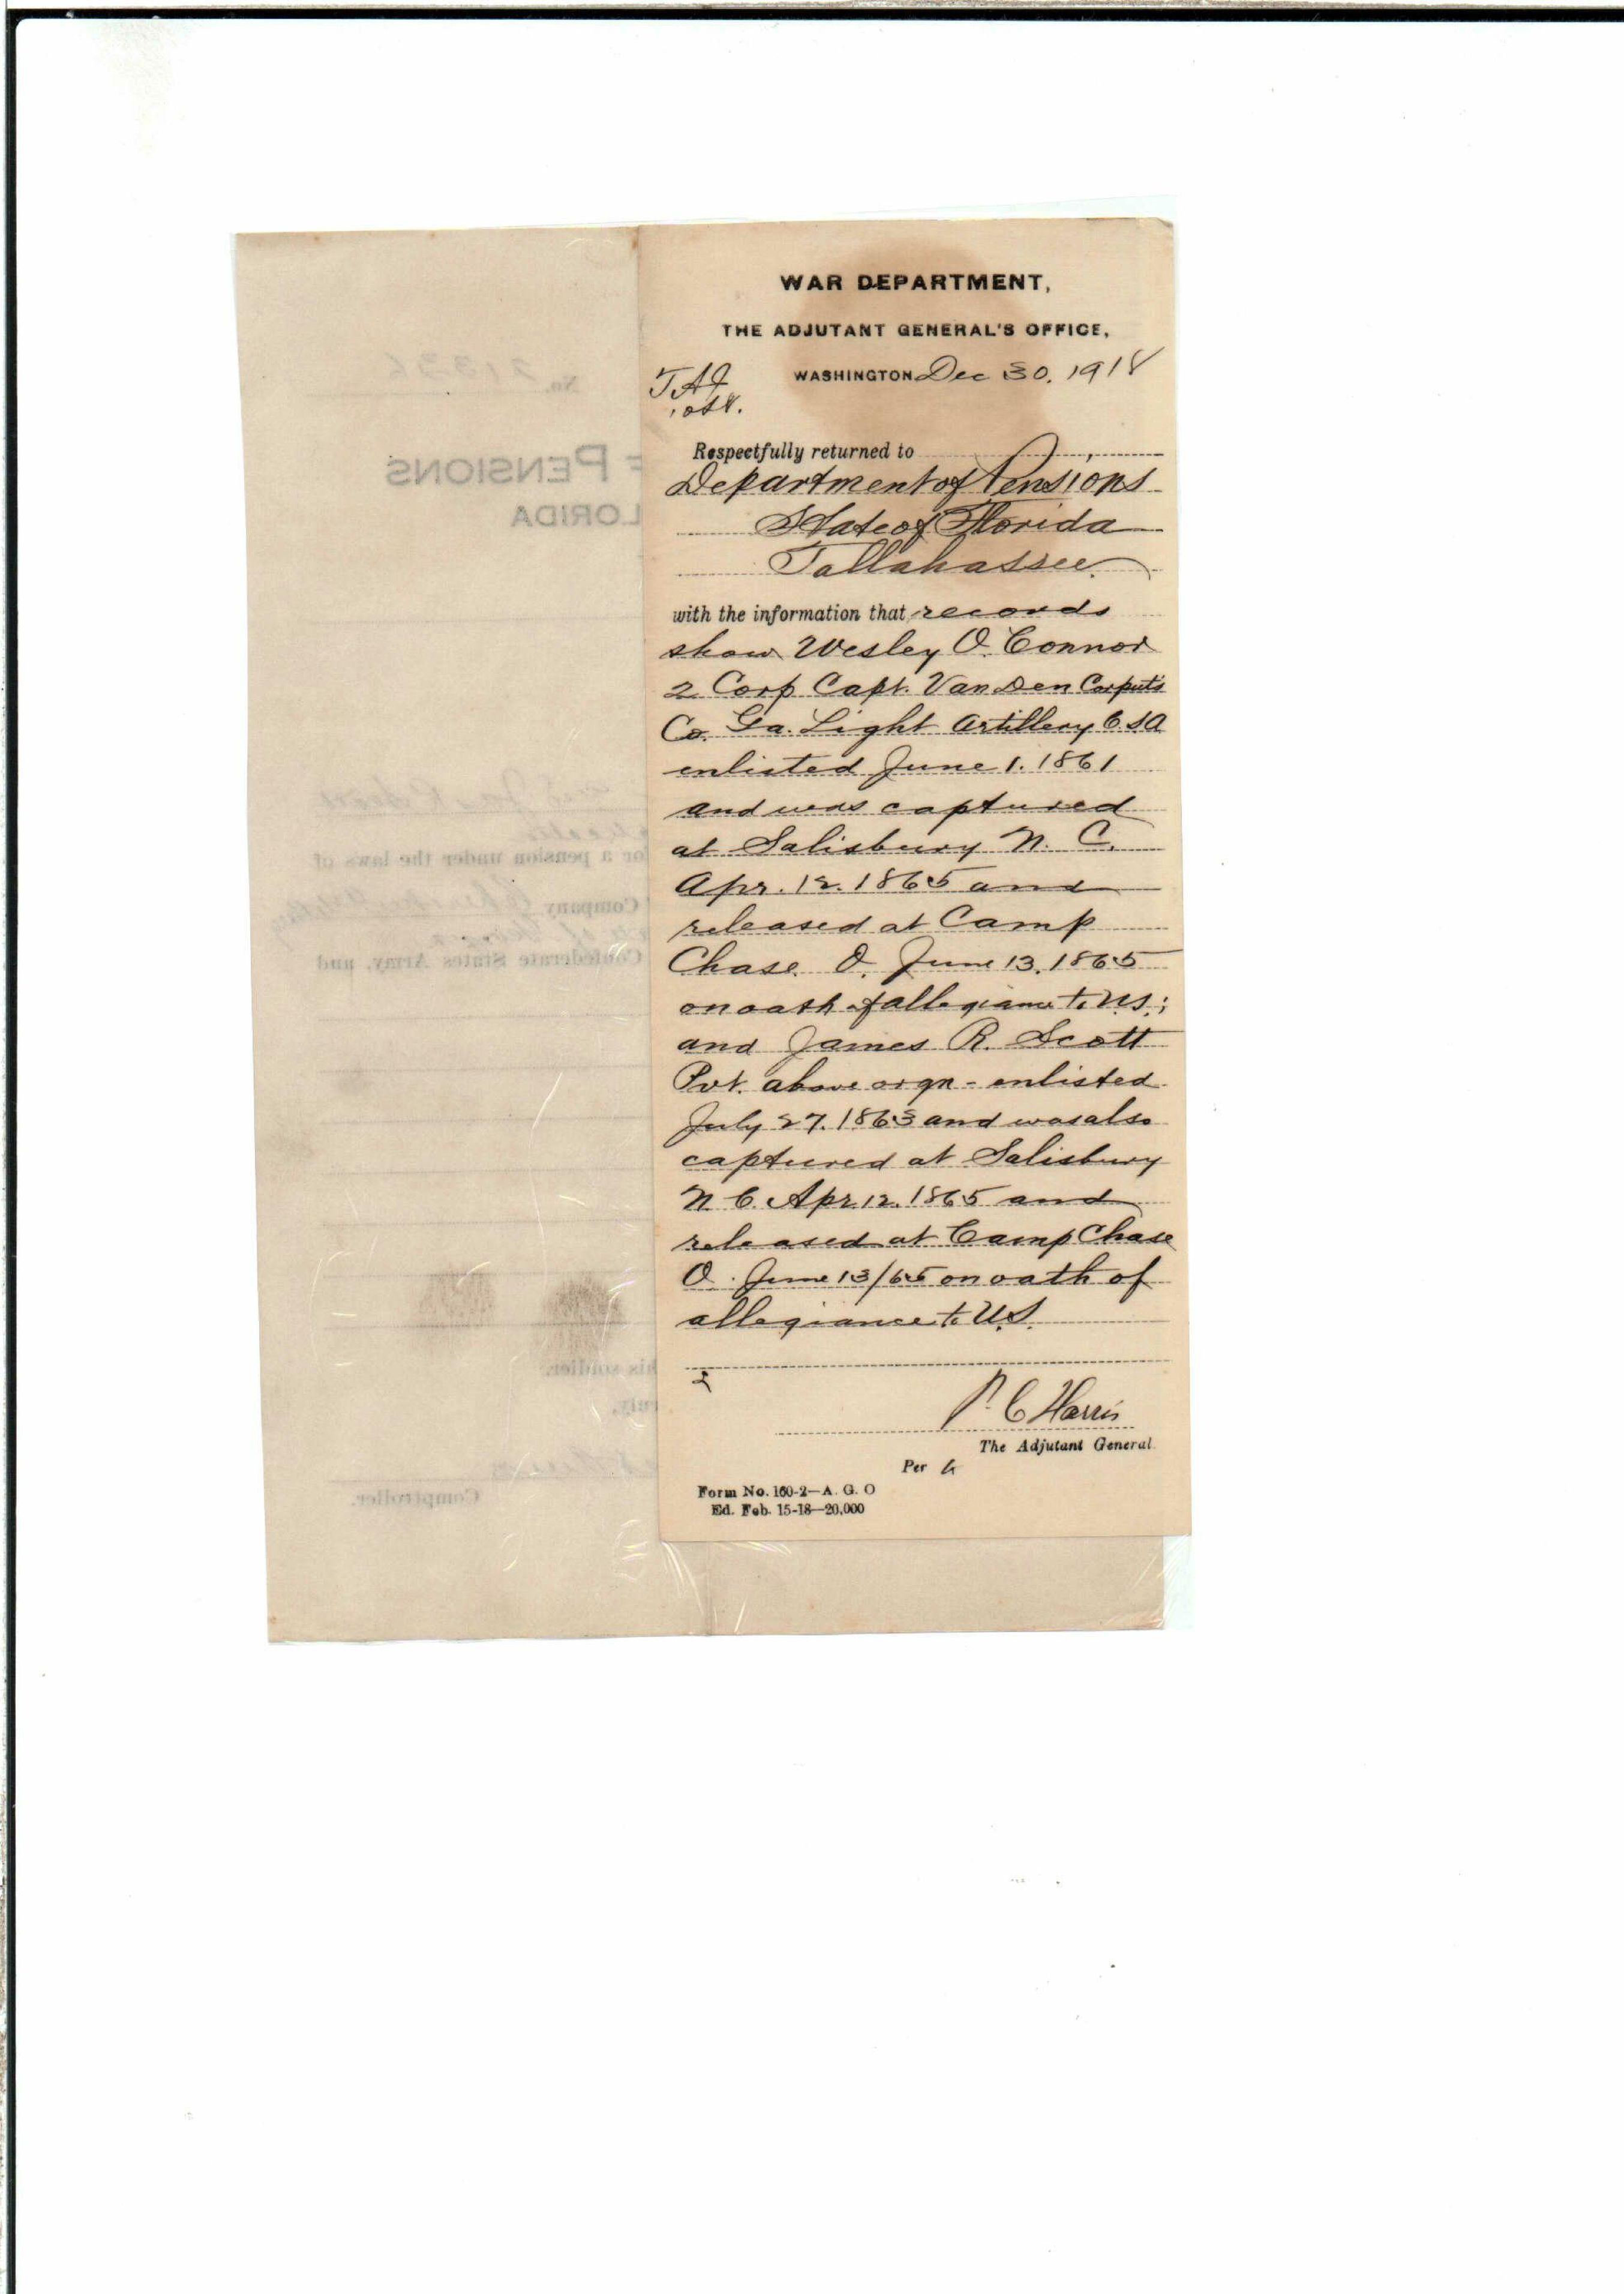 WAR DEPARTMENT,
THE ADJUTANT GENERAL'S OFFICE,
WASHINGTON Dec 30, 1918
Respectfully returned to
Department of Pensions
State of Florida
Tallahassee.
with the information that records
show Wesley O. Connor
2 Corp Capt. Van Den Corput's
Co. Ga. Light Artillery C S A
enlisted June 1. 1861
and was captured
at Salisbury N. C.
Apr. 12. 1865 and
released at Camp
Chase. O. June 13. 1865
on oath of allegiance to U.S.;
and James R. Scott
Pvt. above orgn - enlisted
July 27. 1863 and was also
captured at Salisbury
N C. Apr. 12. 1865 and
released at Camp Chase
O. June 13/65 on oath of
allegiance to U.S.
2
P. C Harris
The Adjutant General
Per
Form No. 160-2—A. G. O
Ed. Feb. 15-18—20,000
No. 21336
F PENSIONS
LORIDA
or a pension under the laws of
Company
Confederate States Army, and
his soldier.
Comptroller.